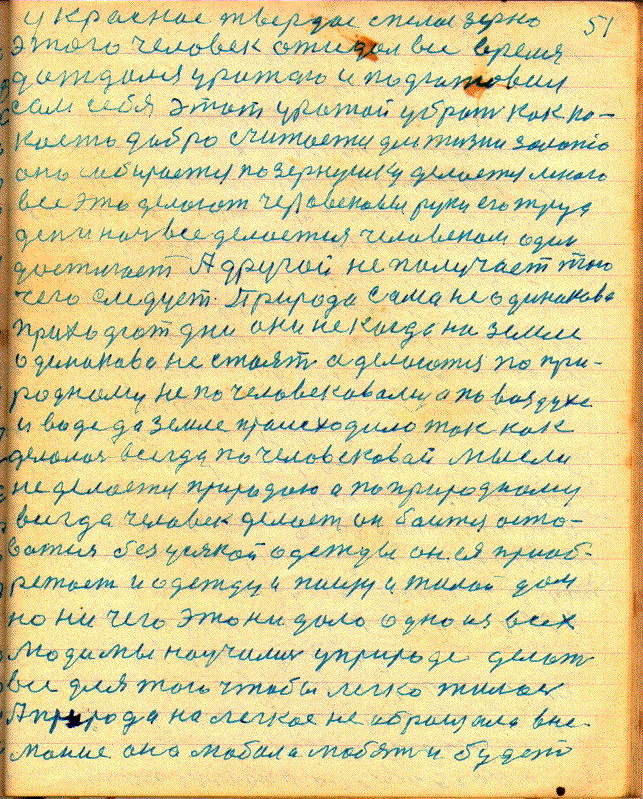 51
и красное твердое спелое зерно
этого человек ожидал все время
дождался урожаю и подготовил
сам себя этот урожай убрать как по-
кость добро считается для жизни золото
оно собирается по зернушку делается много
все это делают человековы руки его труд
ден и ноч все делается человеком один
достигает А другой не получает того
чего следует. Природа сама не одинакова
приходют дни они некогда на земле
одинаково не стоят а делаются по при-
родному не по человековому а по воздухе
и воде да земле происходило так как
делалоя всегда по человековай мысли
не делается природою а по природному
всегда человек делает он боится оста-
ватся без усякой одежды он ея приоб-
ретает и одежду и пищу и жилой дом
но ни чего это ни дало одно из всех
Люди мы научились у природе делать
все для того чтобы легко жилось
А природа на легкое не обращала вне-
мание она любила любят и будет